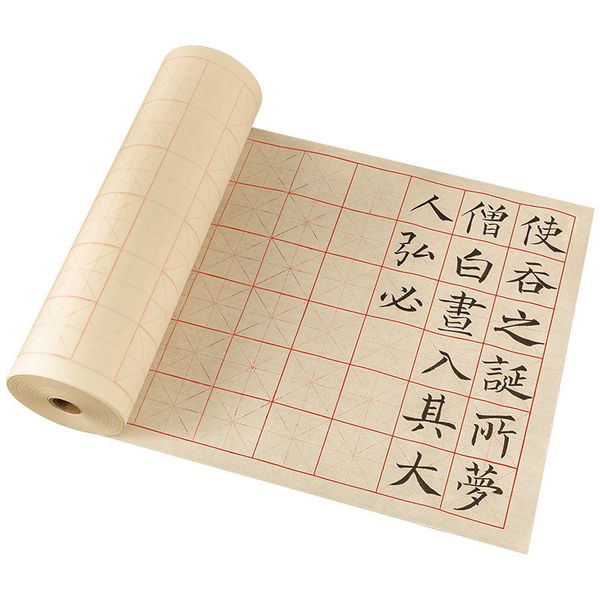 使吞之誕所夢
僧白晝入其大
人弘必